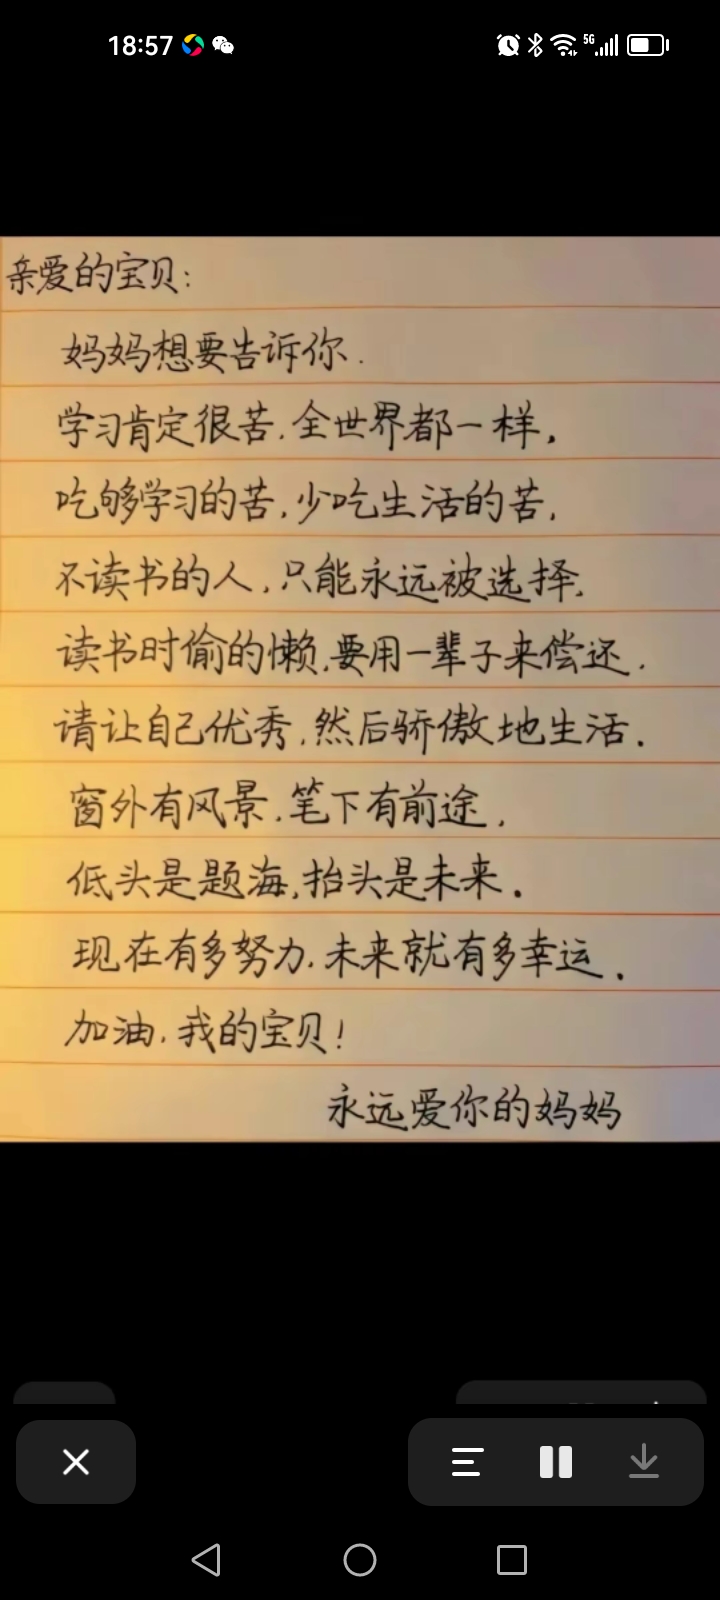 18:57 5G
亲爱的宝贝:
妈妈想要告诉你.
学习肯定很苦.全世界都一样.
吃够学习的苦,少吃生活的苦,
不读书的人,只能永远被选择.
读书时偷的懒,要用一辈子来偿还.
请让自己优秀,然后骄傲地生活.
窗外有风景.笔下有前途.
低头是题海,抬头是未来.
现在有多努力.未来就有多幸运.
加油.我的宝贝!
永远爱你的妈妈